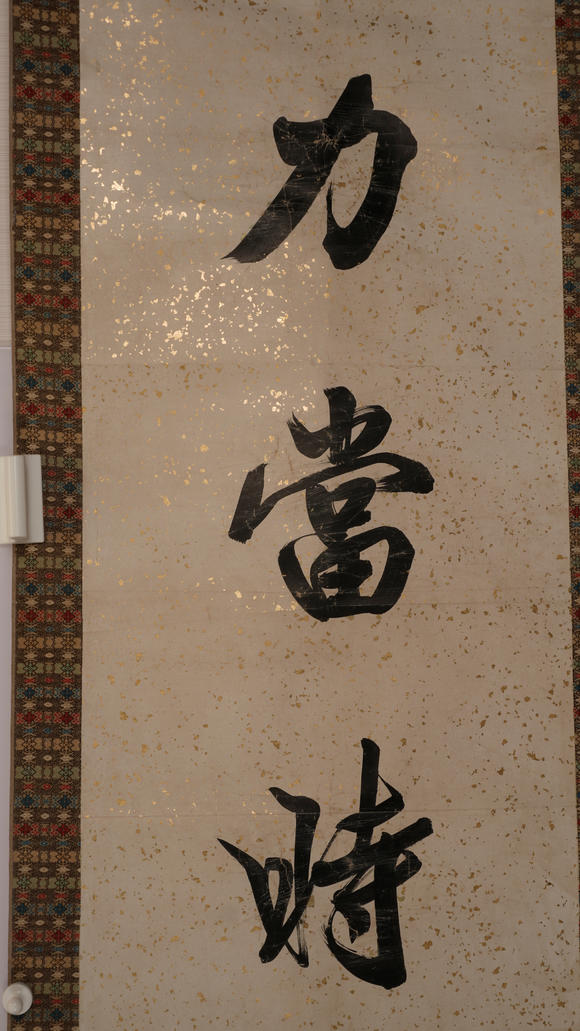 力當時